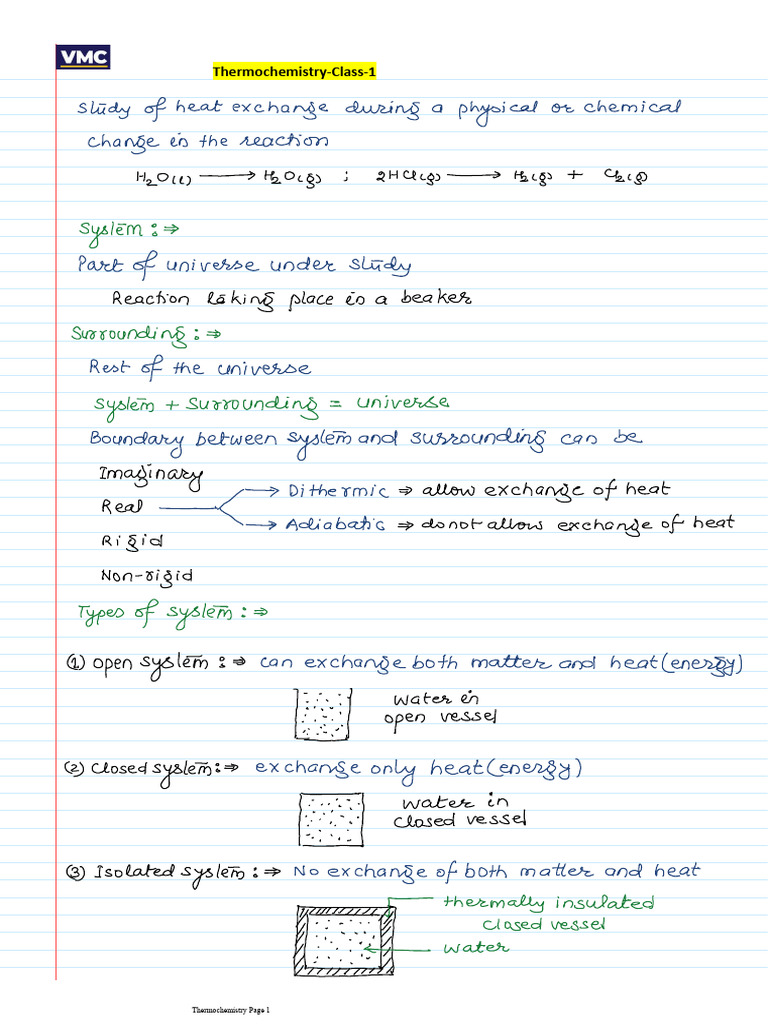 VMC
Thermochemistry-Class-1
Study of heat exchange during a physical or chemical
change in the reaction
H₂O(l) ⟶ H₂O(g) ; 2HCl(g) ⟶ H₂(g) + Cl₂(g)
System :⇒
Part of universe under study
Reaction taking place in a beaker
Surrounding :⇒
Rest of the universe
System + Surrounding = universe
Boundary between system and surrounding can be
Imaginary
Real
→ Dithermic ⇒ allow exchange of heat
→ Adiabatic ⇒ do not allow exchange of heat
Rigid
Non-rigid
Types of system :⇒
(1) open system :⇒ can exchange both matter and heat (energy)
water in
open vessel
(2) Closed system :⇒ exchange only heat (energy)
water in
closed vessel
(3) Isolated system :⇒ No exchange of both matter and heat
thermally insulated
closed vessel
water
Thermochemistry Page 1